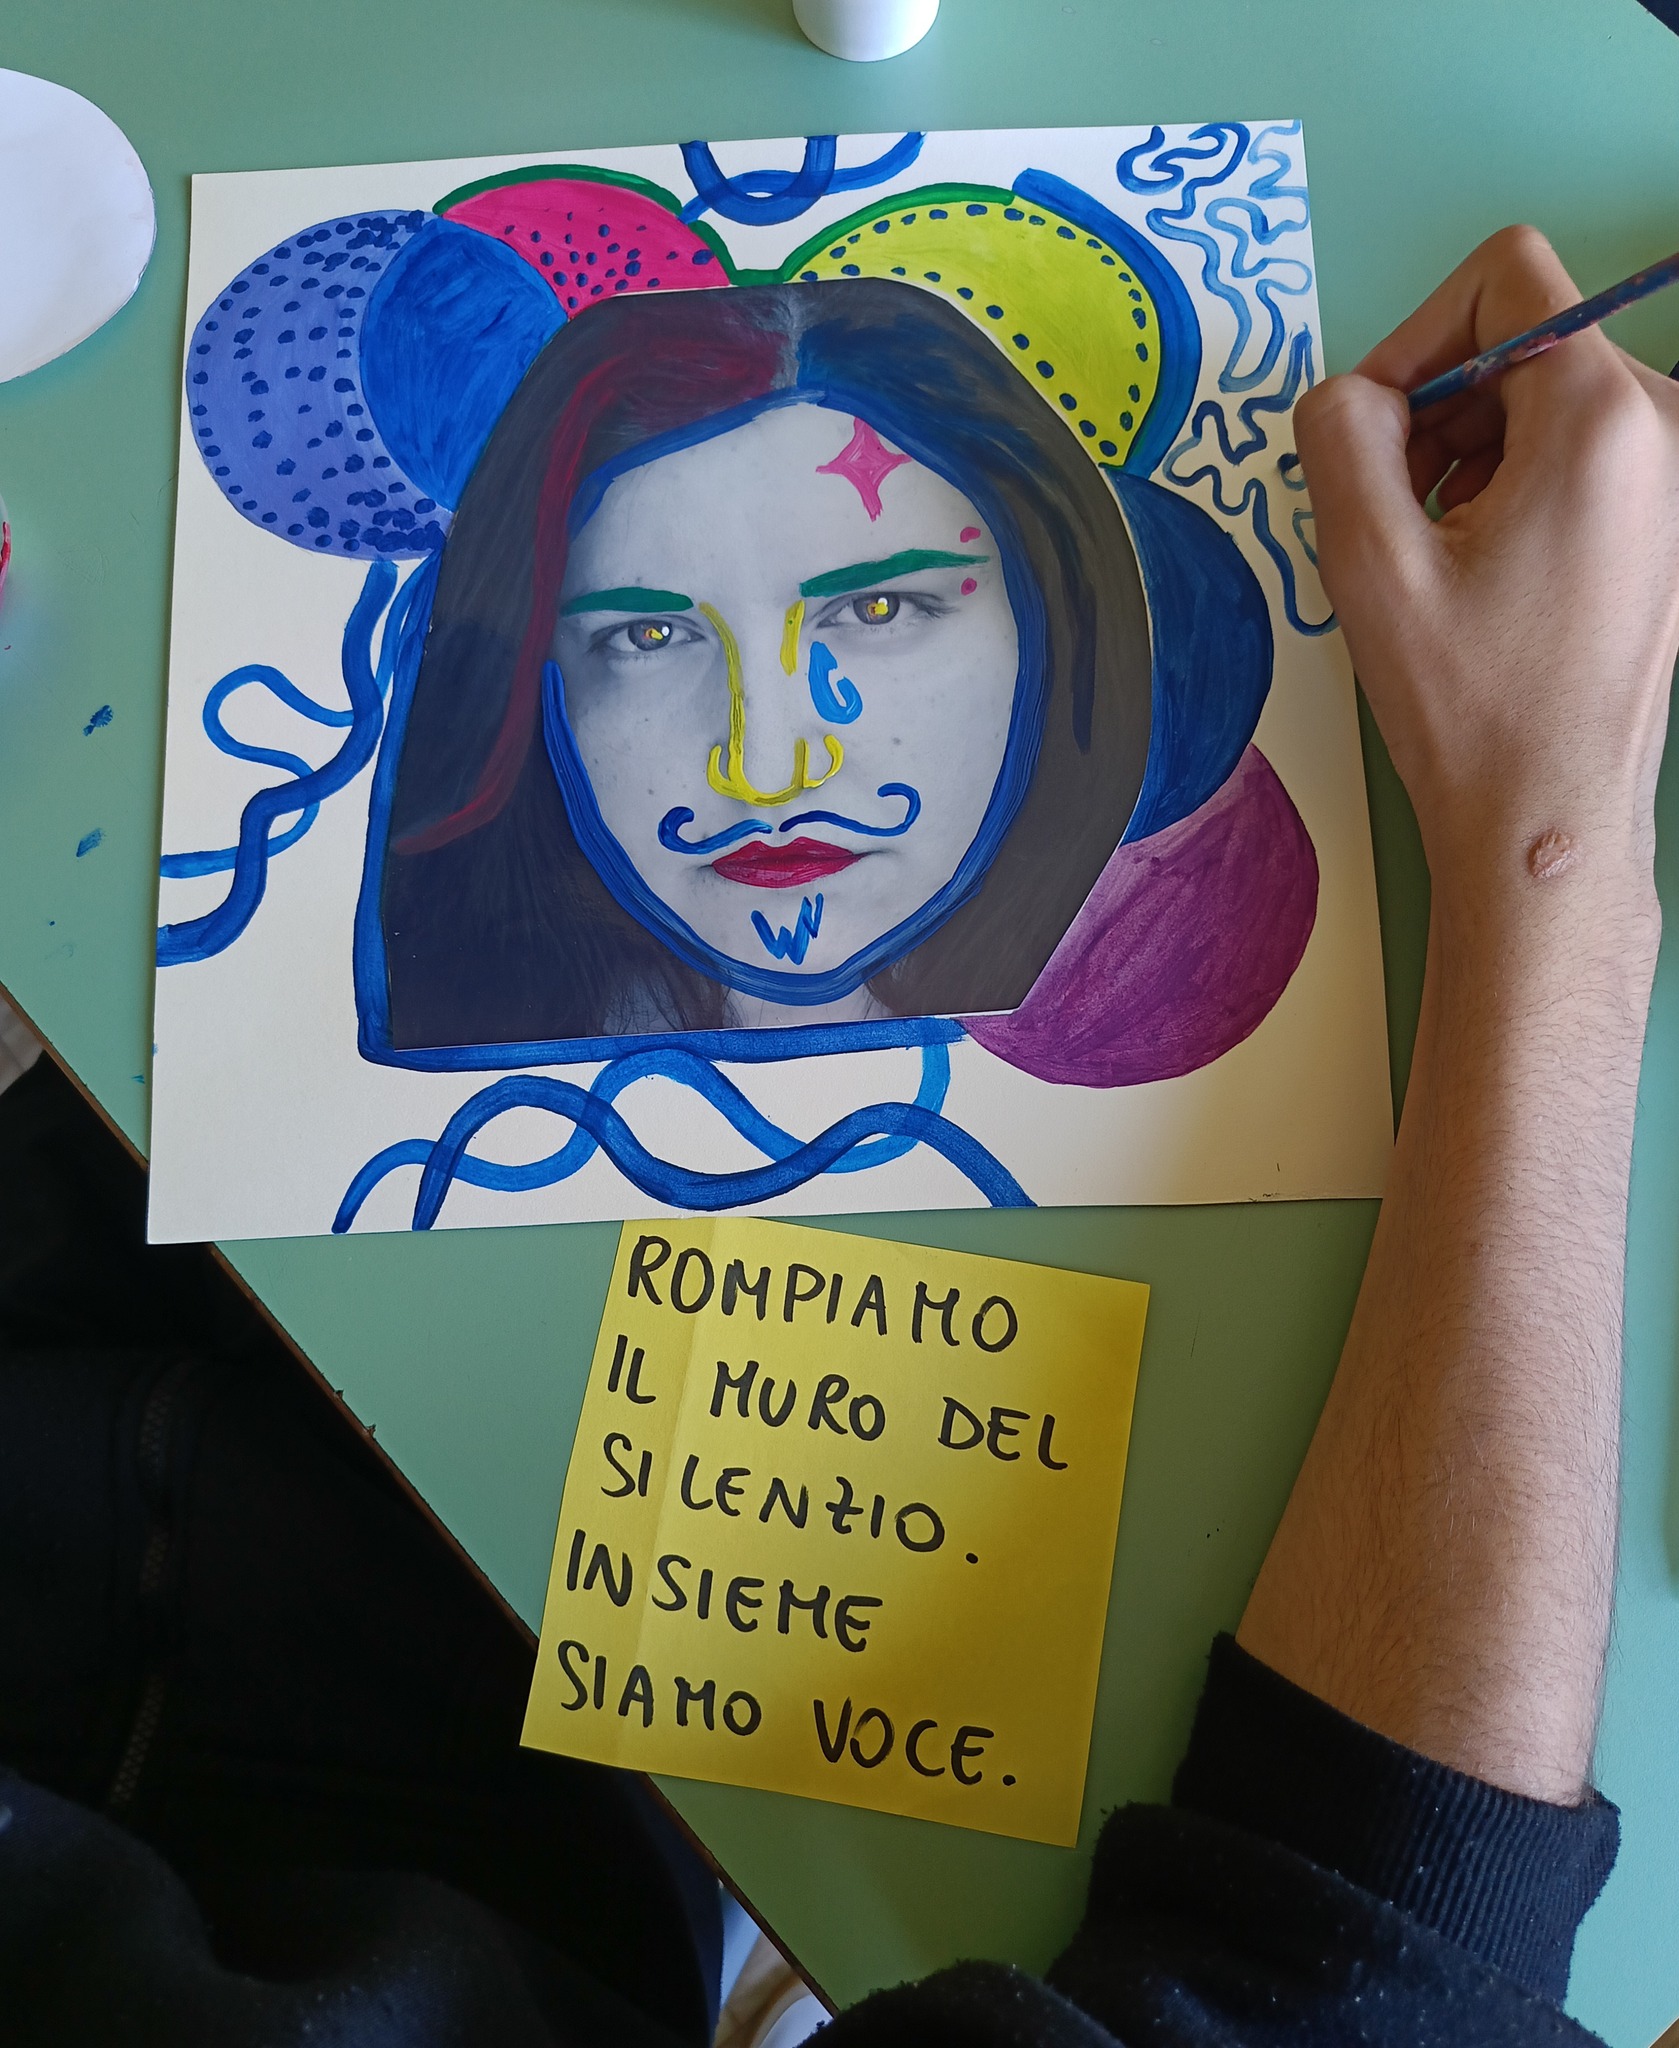 ROMPIAMO
IL MURO DEL
SILENZIO.
INSIEME
SIAMO VOCE.